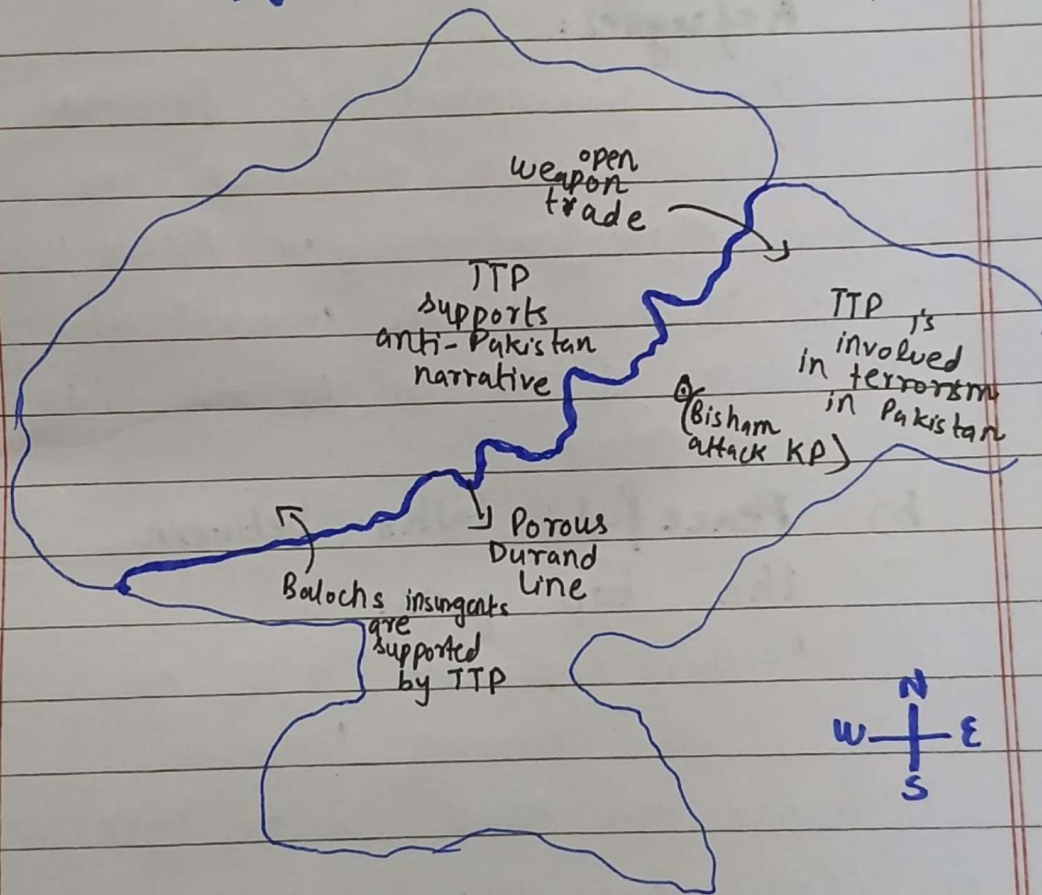 open
weapon
trade
TTP
supports
anti-Pakistan
narrative
TTP is
involved
in terrorism
in Pakistan
(Bisham
attack KP)
Porous
Durand
Line
Balochs insurgants
are
supported
by TTP
N
W E
S